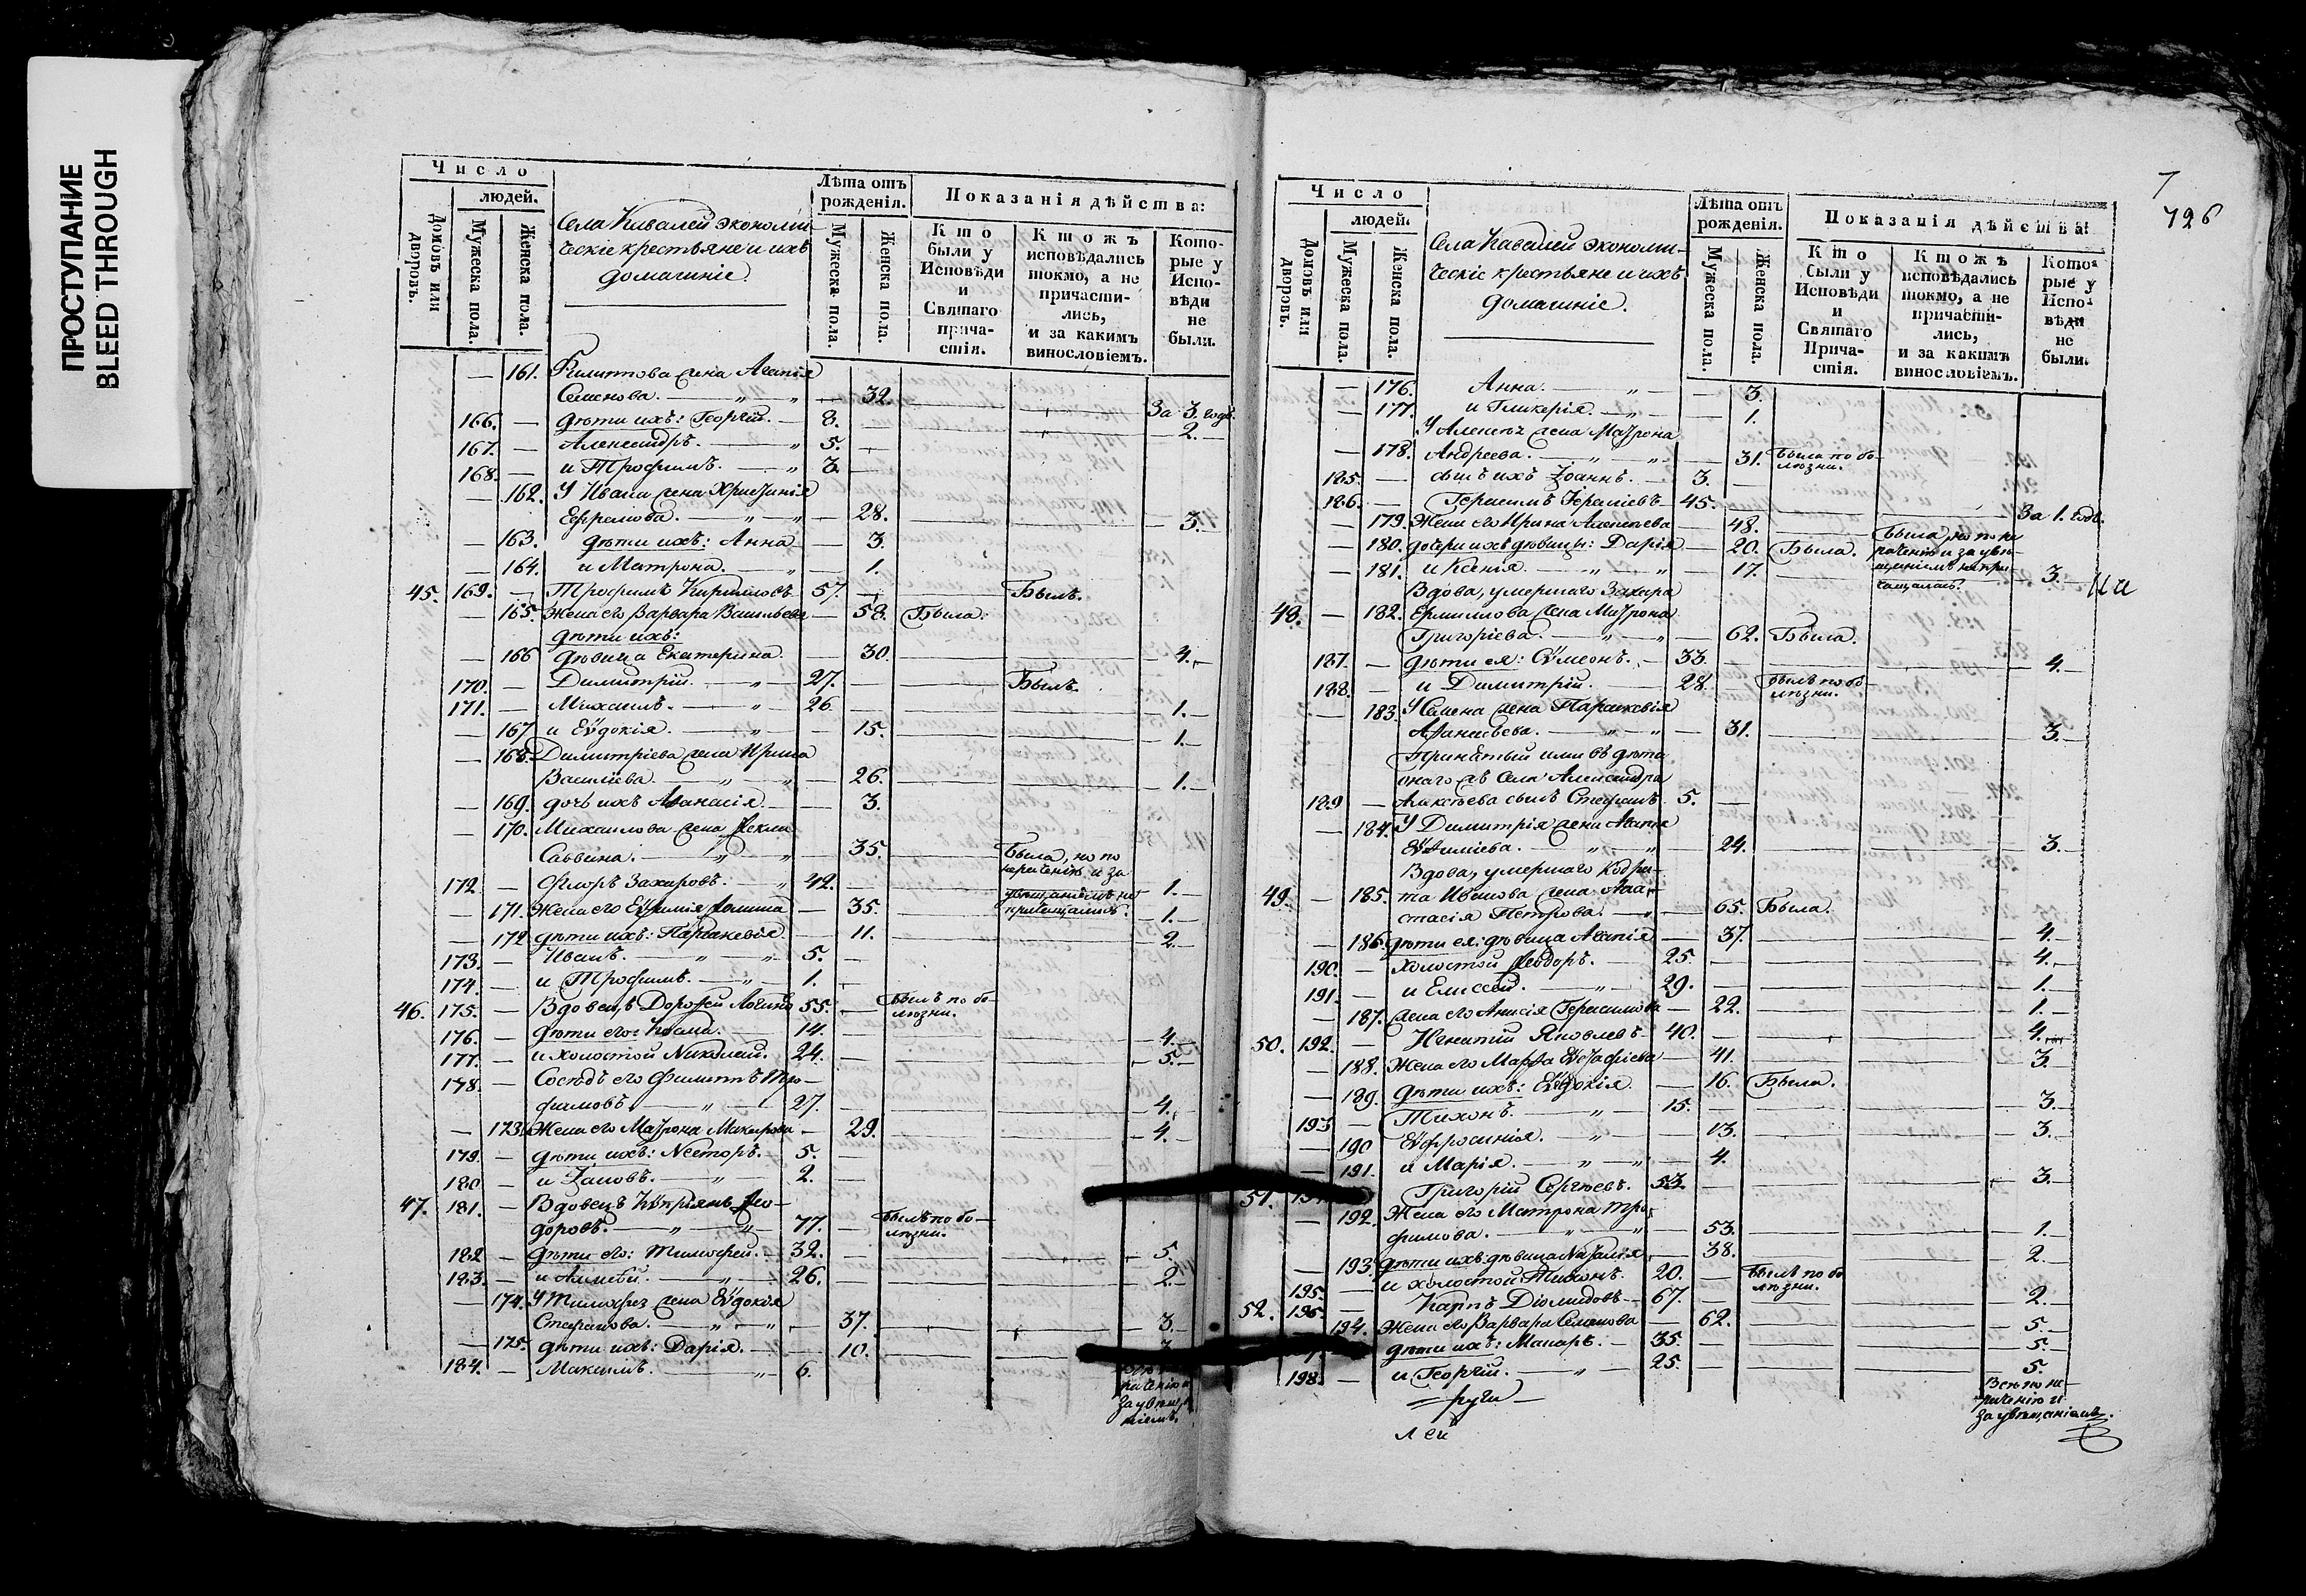 ПРОСТУПАНИЕ
BLEED THROUGH
Число
людей.
Домовъ или дворовъ.
Мужеска пола.
Женска пола.
Села Кивалей экономи-
ческіе крестьяне и ихъ
домашніе.
Лѣта отъ рожденія.
Мужеска пола.
Женска пола.
Показанія дѣйства:
Кто были у Исповѣди и Святаго прича-стія.
Ктожъ исповѣдались токмо, а не причасти-лись, и за какимъ винословіемъ.
Кото-рые у Испо-вѣди не были.
— 161. Филиппова жена Агапія
Семенова. — 32. За 3. года
166. — дѣти ихъ: Георгій. — 8. 2.
167. — Александръ. — 5.
168. — и Трофимъ. — 3.
— 162. У Ивана жена Христинія
Ефремова. — 28. 3.
— 163. дѣти ихъ: Анна — 3.
— 164. и Матрона. — 1.
45. 169. — Трофимъ Кириловъ 57. Былъ.
— 165. Жена его Варвара Васильева — 58. Была.
дѣти ихъ:
— 166 дѣвица Екатерина. — 30. 4.
170. — Димитрій. — 27. Былъ.
171. — Михаилъ. — 26 1.
— 167 и Еѵдокія. — 15. 1.
— 168. Димитріева жена Ирина
Василіева. — 26. 1.
— 169. дочь ихъ Аѳанасія. — 3.
— 170. Михаилова жена Ѳекла
Саввина. — 35. Была, но по
нераченію и за
172. — Флоръ Захаровъ. — 42. 1.
увѣщаніемъ не
причащалась.
— 171. Жена его Еѵѳимія Ѳомина — 35. 1.
— 172 дѣти ихъ: Параскевія — 11. 2.
173. — Иванъ. — 5.
174. — и Трофимъ. — 1.
46. 175. — Вдовецъ Дороѳей 55. — Былъ по бо-
лѣзни.
176. — дѣти его: Козма. — 14. 4.
177. — и холостой Николай. 24. 5.
178. — Сосѣдъ его Филиппъ Тро-
фимовъ. — 27. 4.
— 173. Жена его Матрона Макарова — 29. 4.
179. — дѣти ихъ: Несторъ. — 5.
180 — и Іаковъ. — 2.
47. 181. — Вдовецъ Кѵпріянъ Ѳео-
доровъ. — 77. — Былъ по бо-
лѣзни.
182 — дѣти его: Тимоѳей. — 32. 5.
183. — и Алексѣй. — 26. 2.
— 174. У Тимоѳея жена Еѵдокія
Стефанова. — 37. 3.
— 175. дѣти ихъ: Дарія. — 10. 3.
184. — Максимъ. — 6.
раченію и
за увѣща-
ніемъ.
7
726
Число
людей.
Домовъ или дворовъ.
Мужеска пола.
Женска пола.
Села Кавалей экономи-
ческіе крестьяне и ихъ
домашніе.
Лѣта отъ рожденія.
Мужеска пола.
Женска пола.
Показанія дѣйства:
Кто были у Исповѣди и Святаго Прича-стія.
Ктожъ исповѣдались токмо, а не причасти-лись, и за какимъ винословіемъ.
Кото-рые у Испо-вѣди не были.
— 176. Анна. — 3.
— 177. и Гликерія. — 1.
У Алексѣя жена Матрона
— 178. Андреева. — 31. Была по бо-
лѣзни.
185. — сынъ ихъ Іоаннъ. — 3.
186. — Герасимъ Іереміевъ 45. За 1. годъ.
— 179. Жена его Ирина — 48. Была, но по не
раченію и за увѣ-
щаніемъ не при-
чащалась.
— 180. дочери ихъ дѣвицы: Дарія — 20. Была.
— 181. и Ксенія. — 17. 3.
Вдова, умершаго Захара
48. — 182. Ермилова жена Матрона
Григоріева. — 62. Была.
187. — дѣти ея: Сѵмеонъ. — 33. 4.
188. — и Димитрій. — 28. — Былъ по бо-
лѣзни.
— 183. У Семена жена Параскевія
Аѳанасьева. — 31. 3.
Принятый ими въ дѣти
онаго жъ села Александра
189 — Алексѣева сынъ Стефанъ 5.
— 184. У Димитрія жена Агапія
Еѵѳиміева. — 24. 3.
Вдова, умершаго Кодра-
49. — 185. та Иванова жена Анас-
тасія Петрова. — 65. Была.
— 186. дѣти ея: дѣвица Агапія — 37. 4.
190. — холостой Ѳеодоръ. 25. 4.
191. — и Елисей. — 29. 1.
— 187. жена его Анисія Герасимова — 22. 1.
50. 192. — Игнатій Яковлевъ 40. 4.
— 188. Жена его Марѳа Еѵстафіева — 41. 3.
— 189. дѣти ихъ: Еѵдокія — 16. Была.
193 — Тихонъ. — 15. 3.
— 190 Еѵфросинія. — 13. 3.
— 191. и Марія. — 4.
51. Григорій Сергѣевъ. 53. 3.
— 192. Жена его Матрона Тро-
фимова. — 53. 1.
— 193. дѣти ихъ: дѣвица Наталія — 38. 2.
195. — и холостой Тихонъ. 20. — Былъ по бо
лѣзни.
52. 196. — Карпъ Діомидовъ — 67. 2.
— 194. Жена его Варвара Семенова — 62. 5.
дѣти ихъ: Макаръ. — 35. 5.
198. — и Георгій. — 25. 5.
Всѣ по не-
раченію и
за увѣщаніемъ.